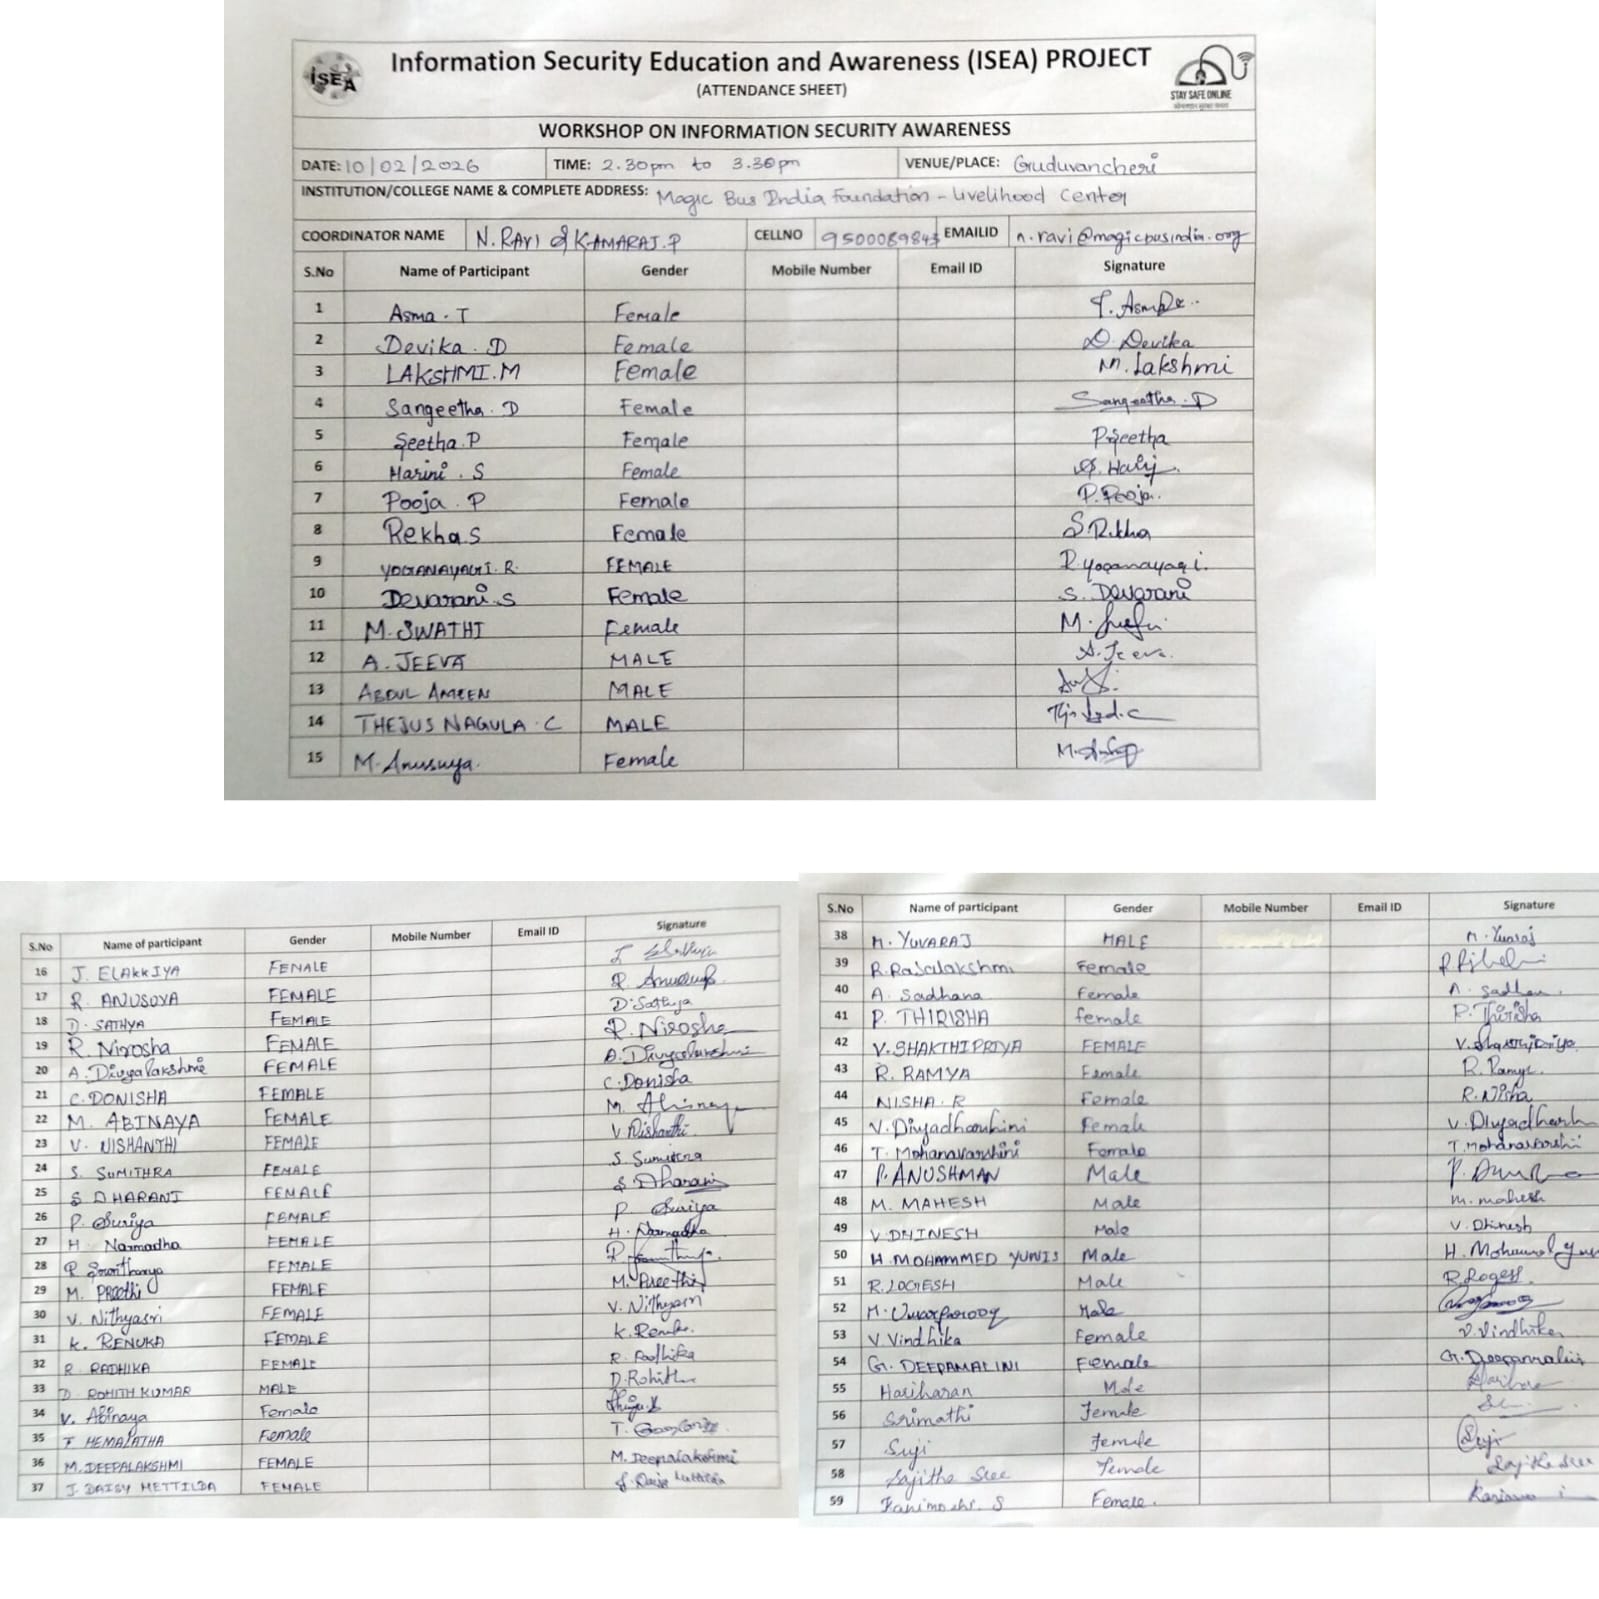 ISEA
Information Security Education and Awareness (ISEA) PROJECT
(ATTENDANCE SHEET)
STAY SAFE ONLINE
WORKSHOP ON INFORMATION SECURITY AWARENESS
DATE: 10/02/2026 TIME: 2.30pm to 3.30pm VENUE/PLACE: Guduvancheri
INSTITUTION/COLLEGE NAME & COMPLETE ADDRESS: Magic Bus India Foundation - Livelihood Center
COORDINATOR NAME N. RAVI & KAMARAJ. P CELLNO 9500089843 EMAILID n.ravi@magicbusindia.org
S.No Name of Participant Gender Mobile Number Email ID Signature
1 Asma . T Female T. Asma
2 Devika . D Female D. Devika
3 LAKSHMI.M Female M. Lakshmi
4 Sangeetha. D Female Sangeetha. D
5 Seetha.P Female P.Seetha
6 Harini . S Female
7 Pooja . P Female P. Pooja.
8 Rekha.S Female S. Rekha
9 YOGANAYAGI. R. FEMALE R. yoganayagi.
10 Devarani.S Female S. Devarani
11 M. SWATHI Female M.
12 A. JEEVA MALE A. Jeeva.
13 ABDUL AMEEN MALE
14 THEJUS NAGULA . C MALE
15 M. Anusuya. Female M.
S.No Name of participant Gender Mobile Number Email ID Signature
16 J. ELAKKIYA FEMALE
17 R. ANUSOYA FEMALE R.
18 D. SATHYA FEMALE D. Sathya
19 R. Nirosha FEMALE R. Nirosha
20 A. Divyalakshmi FEMALE A. Divyalakshmi
21 C. DONISHA FEMALE C. Donisha
22 M. ABINAYA FEMALE M. Abinaya
23 V. NISHANTHI FEMALE V. Nishanthi
24 S. SUMITHRA FEMALE S. Sumithra
25 S DHARANI FEMALE S. Dharani
26 P. Suriya FEMALE P. Suriya
27 H. Narmadha FEMALE H. Narmadha
28 R FEMALE R
29 M. Preethi FEMALE M. Preethi
30 V. Nithyasri FEMALE V. Nithyasri
31 K. RENUKA FEMALE K. Renuka
32 R. RADHIKA FEMALE R. Radhika
33 D. ROHITH KUMAR MALE D. Rohith
34 V. Abinaya Female
35 T HEMALATHA Female T.
36 M. DEEPALAKSHMI FEMALE M. Deepalakshmi
37 J. DAISY METTILDA FEMALE
S.No Name of participant Gender Mobile Number Email ID Signature
38 M. YUVARAJ MALE M. Yuvaraj
39 R. Rajalakshmi Female
40 A. Sadhana Female A. Sadhana
41 P. THIRISHA Female P. Thirisha
42 V. SHAKTHIPRIYA FEMALE V. Shakthipriya
43 R. RAMYA Female R. Ramya
44 NISHA . R Female R. Nisha
45 V. Divyadharshini Female V. Divyadharsh
46 T. Mohanavarshini Female T. Mohanavarshini
47 P. ANUSHMAN Male P.
48 M. MAHESH Male M. mahesh
49 V DHINESH Male V. Dhinesh
50 H. MOHAMMED YUNIS Male H. Mohammed
51 R. LOGESH Male R. Logesh
52 M. Umarfarooq Male
53 V Vindhika Female V. Vindhika
54 G. DEEPAMALINI Female G. Deepamalini
55 Hariharan Male
56 Srimathi Female
57 Suji Female Suji
58 Sajitha Sree Female Sajitha Sree
59 Kanimozhi. S Female.